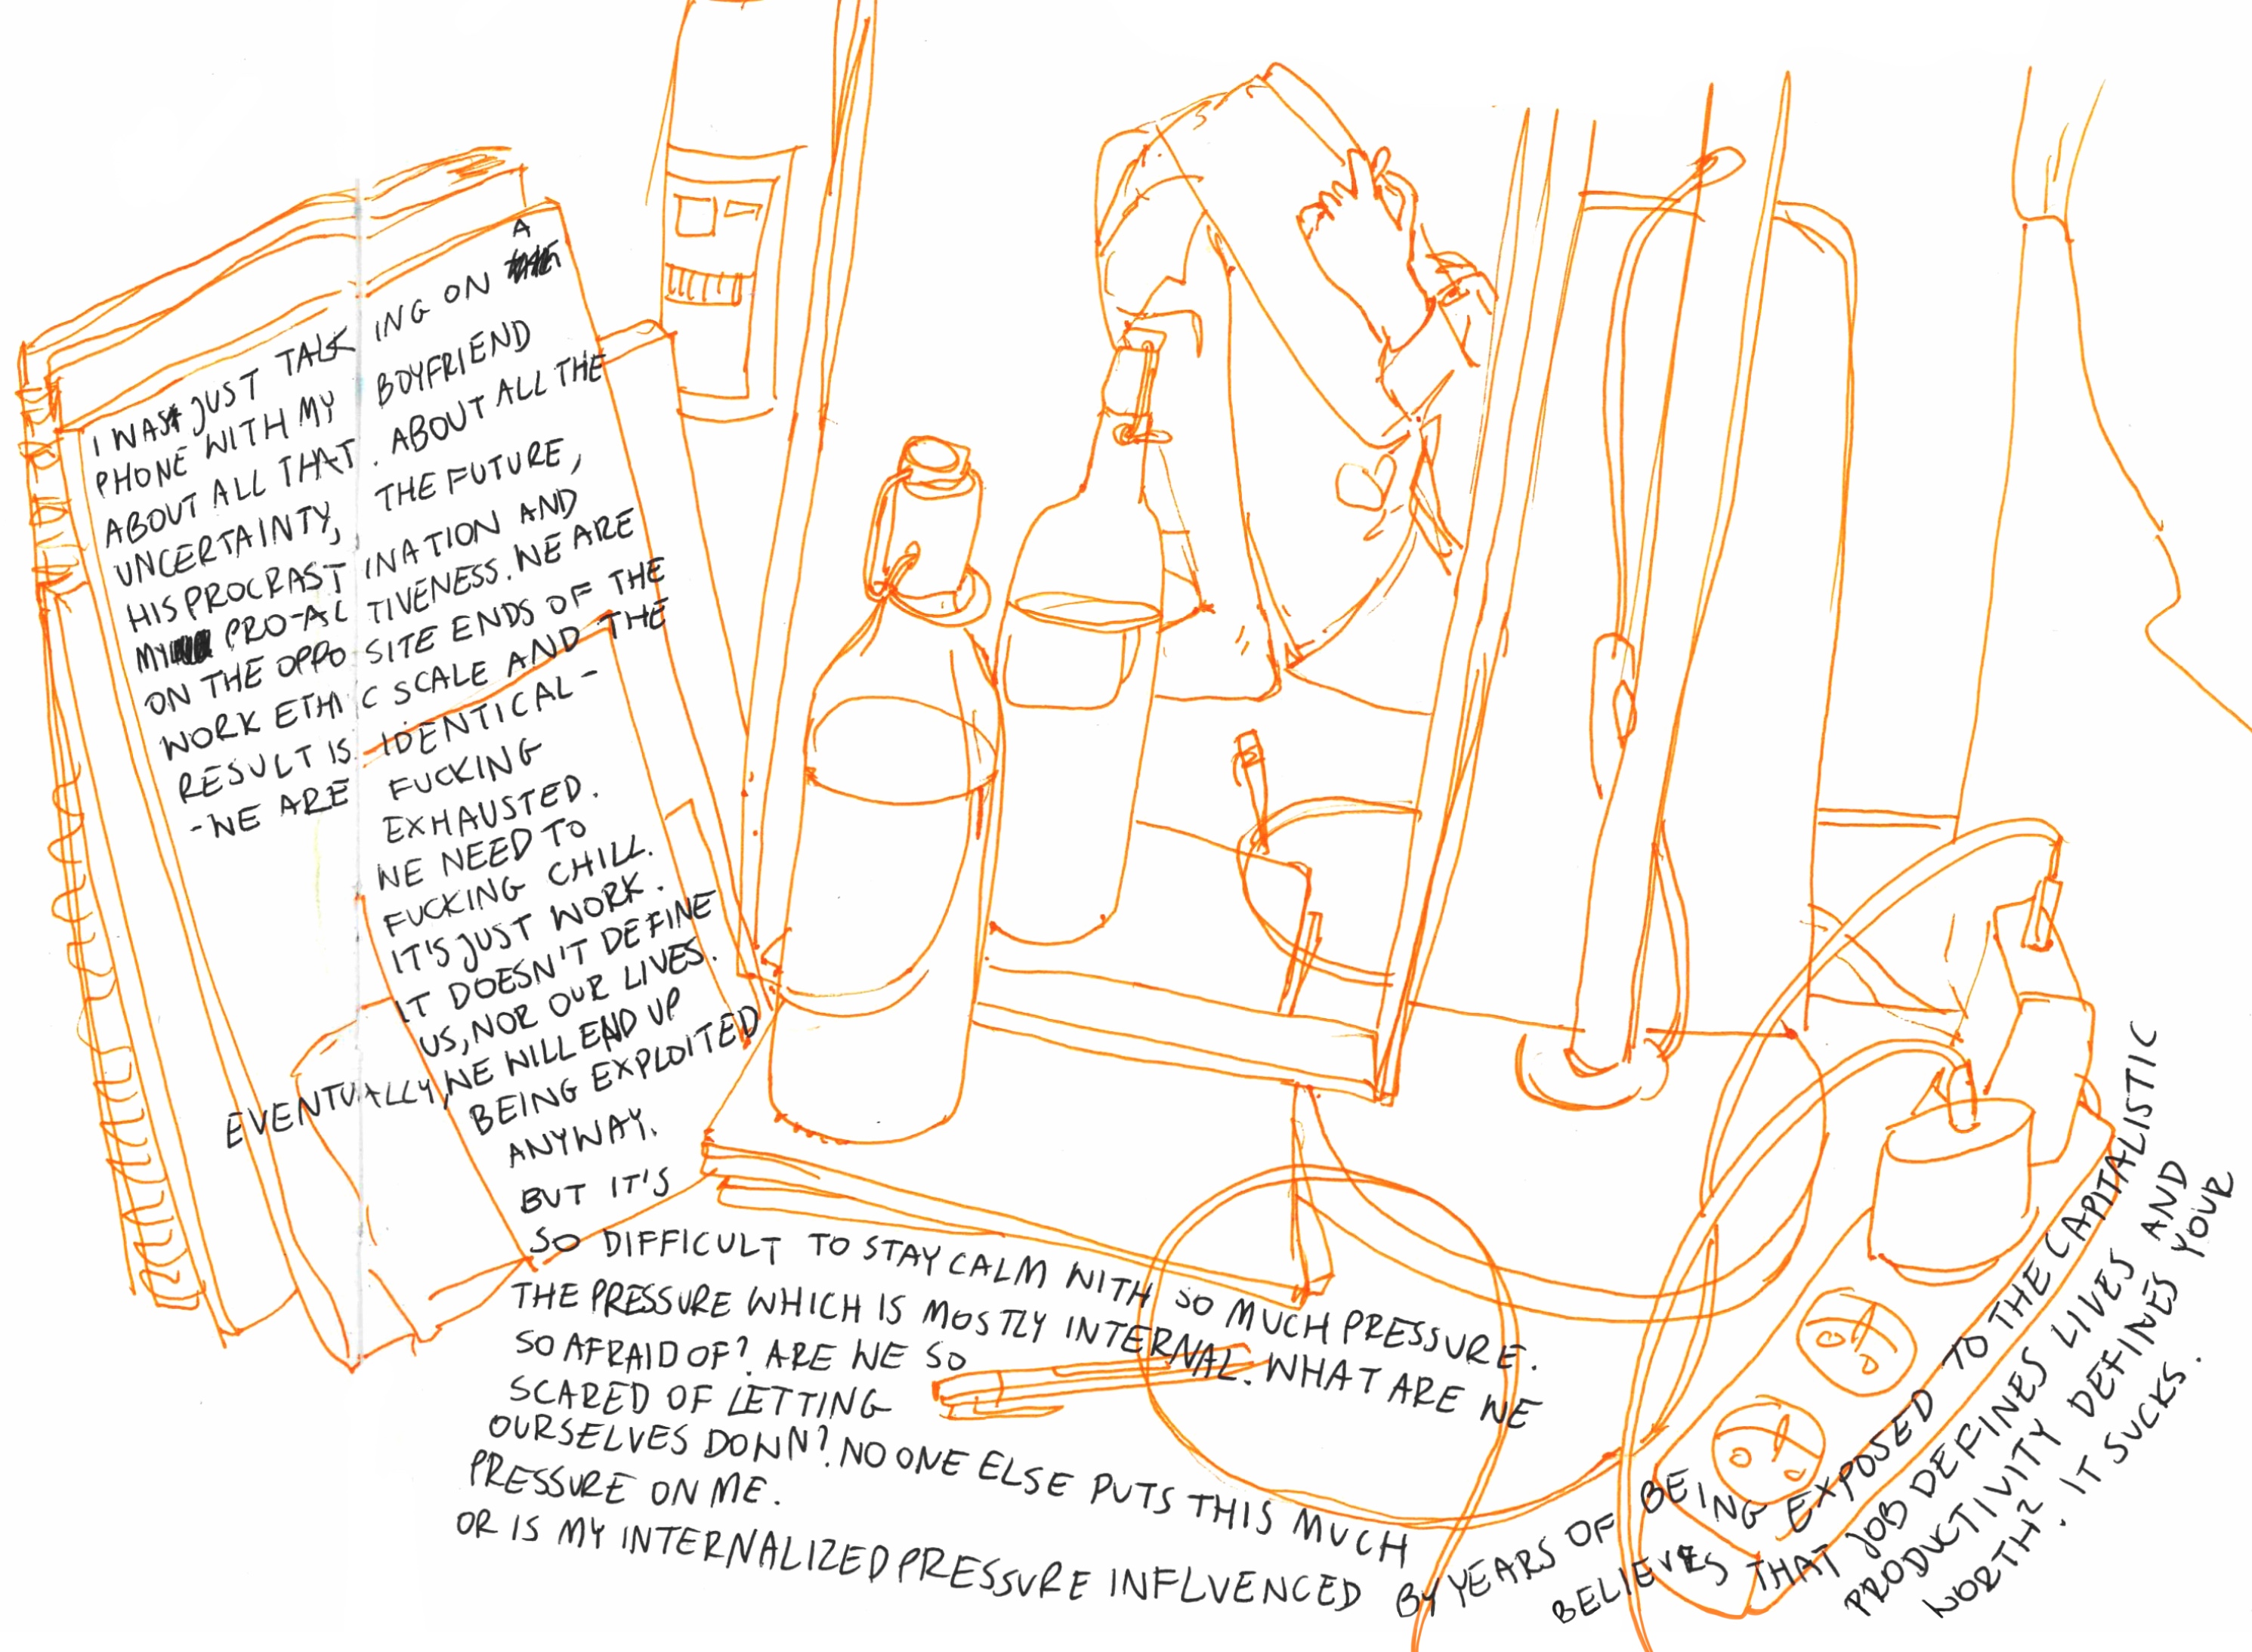 I WAS JUST TALKING ON A
PHONE WITH MY BOYFRIEND
ABOUT ALL THAT. ABOUT ALL THE
UNCERTAINTY, THE FUTURE,
HIS PROCRASTINATION AND
MY PRO-ALTIVENESS. WE ARE
ON THE OPPOSITE ENDS OF THE
WORK ETHIC SCALE AND THE
RESULT IS IDENTICAL-
-WE ARE FUCKING
EXHAUSTED.
WE NEED TO
FUCKING CHILL.
IT'S JUST WORK.
IT DOESN'T DEFINE
US, NOR OUR LIVES.
EVENTUALLY, WE WILL END UP
BEING EXPLOITED
ANYWAY.
BUT IT'S
SO DIFFICULT TO STAY CALM WITH SO MUCH PRESSURE.
THE PRESSURE WHICH IS MOSTLY INTERNAL. WHAT ARE WE
SO AFRAID OF? ARE WE SO
SCARED OF LETTING
OURSELVES DOWN? NO ONE ELSE PUTS THIS MUCH
PRESSURE ON ME.
OR IS MY INTERNALIZED PRESSURE INFLUENCED BY YEARS OF BEING EXPOSED TO THE CAPITALISTIC
BELIEVES THAT JOB DEFINES LIVES AND
PRODUCTIVITY DEFINES YOUR
WORTH?. IT SUCKS.